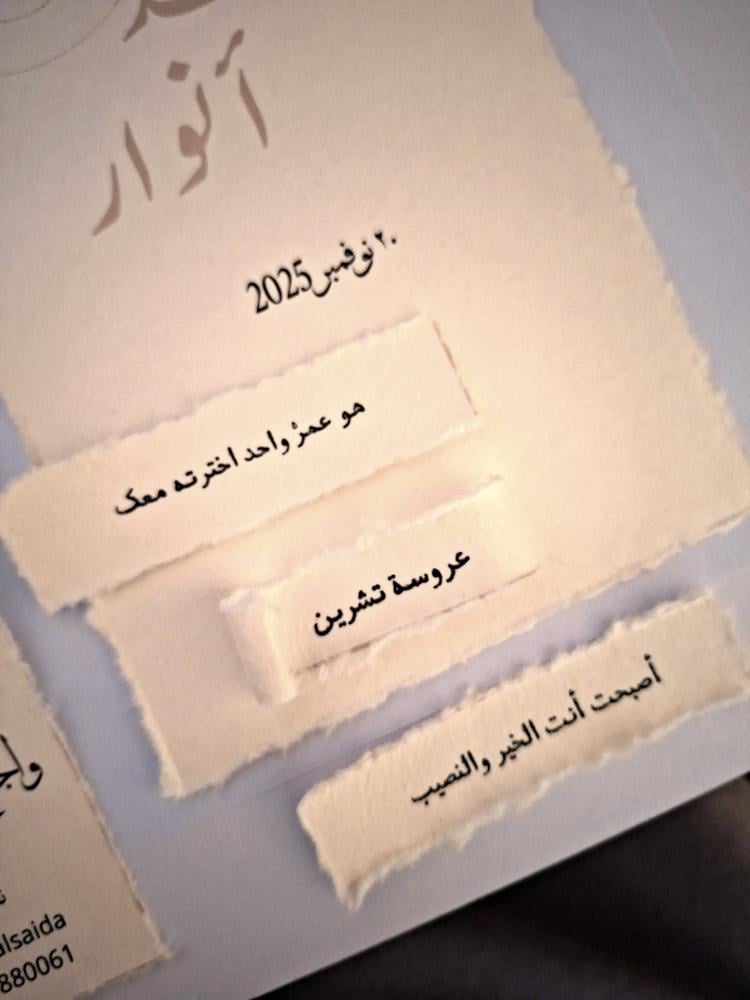 أنوار
٢٠ نوفمبر 2025
هو عمرٌ واحد اخترته معك
عروسة تشرين
أصبحت أنت الخير والنصيب
alsaida
880061